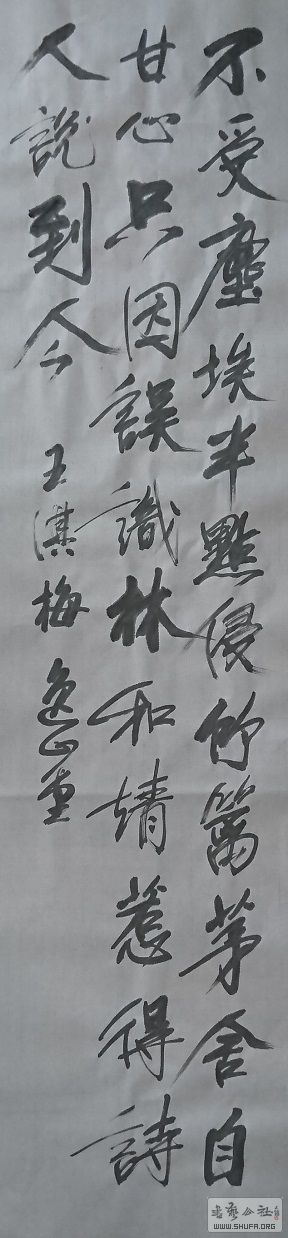 不受塵埃半點侵竹籬茅舍自
甘心只因誤識林和靖惹得詩
人說到今
王淇梅
WWW.SHUFA.ORG